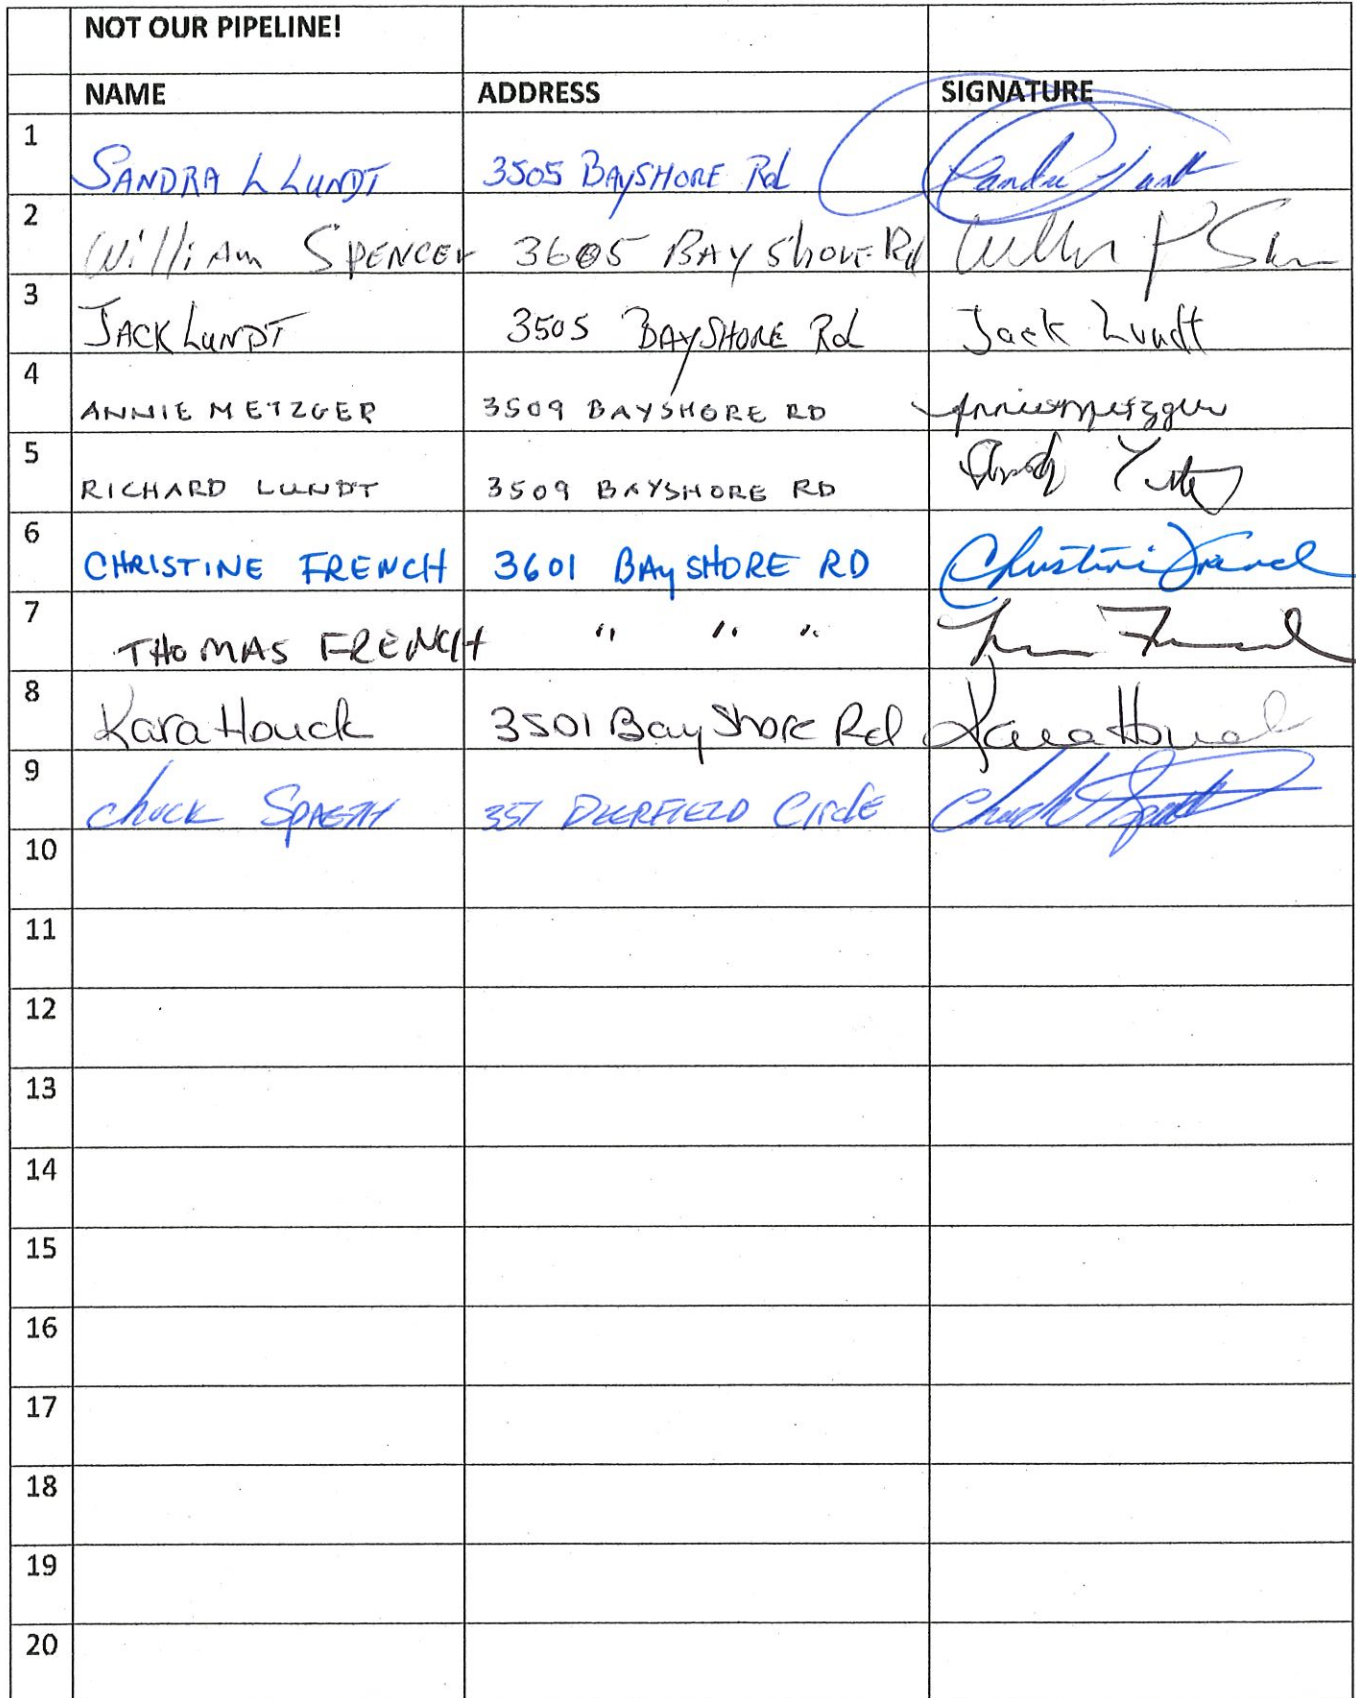 NOT OUR PIPELINE!
NAME ADDRESS SIGNATURE
1 SANDRA L LUNDT 3505 BAYSHORE Rd Sandra Lundt
2 William SPENCER 3605 BAY Shore Rd
3 JACK LUNDT 3505 BAYSHORE Rd Jack Lundt
4 ANNIE METZGER 3509 BAYSHORE RD Annie Metzger
5 RICHARD LUNDT 3509 BAYSHORE RD
6 CHRISTINE FRENCH 3601 BAYSHORE RD Christine French
7 THOMAS FRENCH " " "
8 Kara Houck 3501 Bay Shore Rd Kara Houck
9 Chuck SPAETH 357 DEERFIELD Circle
10
11
12
13
14
15
16
17
18
19
20